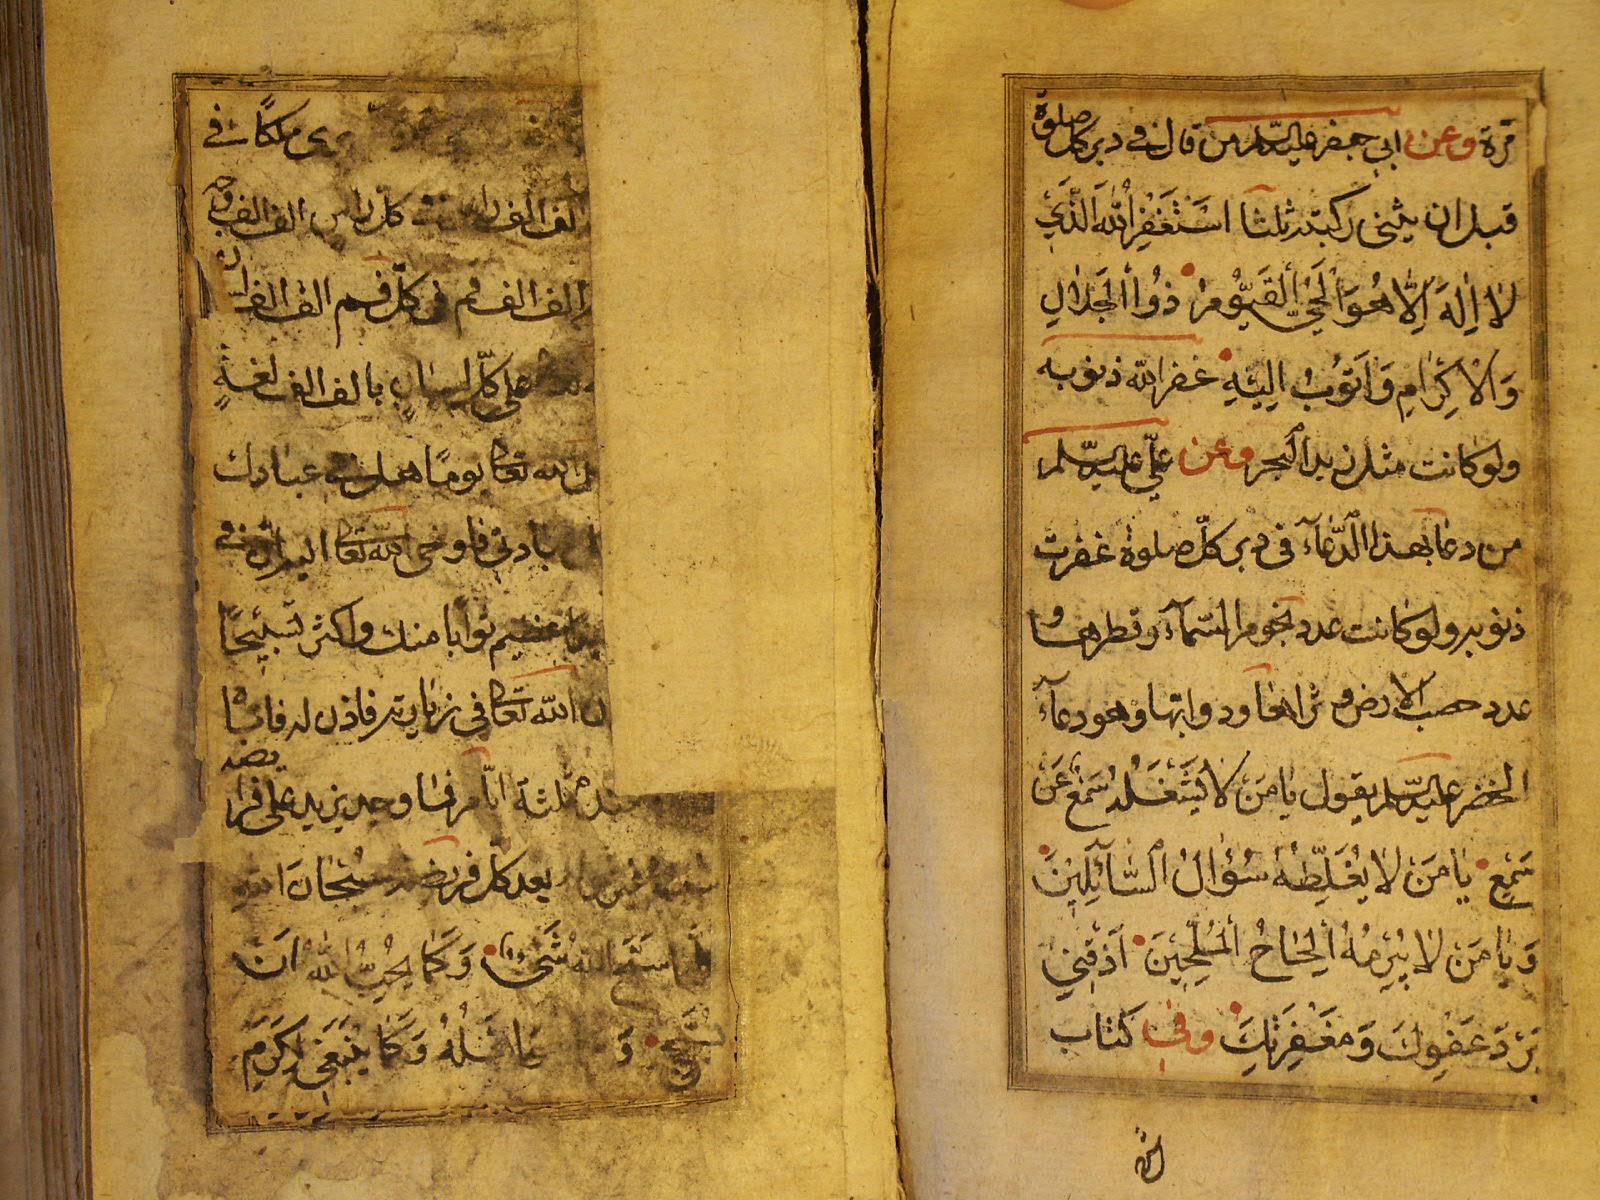 قرة وعن ابي جعفر عليه السلام من قال في دبر كل صلوة
قبل ان يثنى ركبته ثلثا اَسْتَغْفِرُ اللهَ الَّذي
لا اِلهَ اِلّا هُوَ الْحَيُّ الْقَيُّومُ ذُو الْجَلالِ
وَالْاِكْرامِ وَاَتُوبُ اِلَيْهِ غفر الله ذنوبه
ولو كانت مثل زبد البحر وعن عليّ عليه السلم
من دعا بهذا الدّعآء في دبر كلّ صلوة غفرت
ذنوبه ولو كانت عدد نجوم السّمآء وقطرها و
عدد حصب الارض و ثراها ودوابها وهو دعآء
الخضر عليه السلم يقول يا مَنْ لا يَشْغَلُهُ سَمْعٌ عَنْ
سَمْعٍ يا مَنْ لا يُغَلِّطُهُ سُؤالُ السّآئِلينَ
وَيا مَنْ لا يُبْرِمُهُ اِلْحاحُ الْمُلِحّينَ اَذِقْني
بَرْدَ عَفْوِكَ وَمَغْفِرَتِكَ وفي كتاب
ملكا له في
الف الف راس كل راس الف الف وجه
الف الف فم في كلّ فم الف الف لسان
على كلّ لسان بالف الف لغة
الله تعالى يوما هل في عبادك
فاوحى الله تعالى اليه ان في
اعظم ثوابا منك واكثر تسبيحا
الله تعالى في زيارته فاذن له فاتاه
عنده ثلثة ايّام فما وجد يزيد على فرايضه
بعد كلّ فريضة سُبْحانَ الله
شَيْءٌ وَكَما يُحِبُّ اللهُ اَنْ
يُسَبَّحَ وَ اَهْلُهُ وَكَما يَنْبَغي لِكَرَمِ